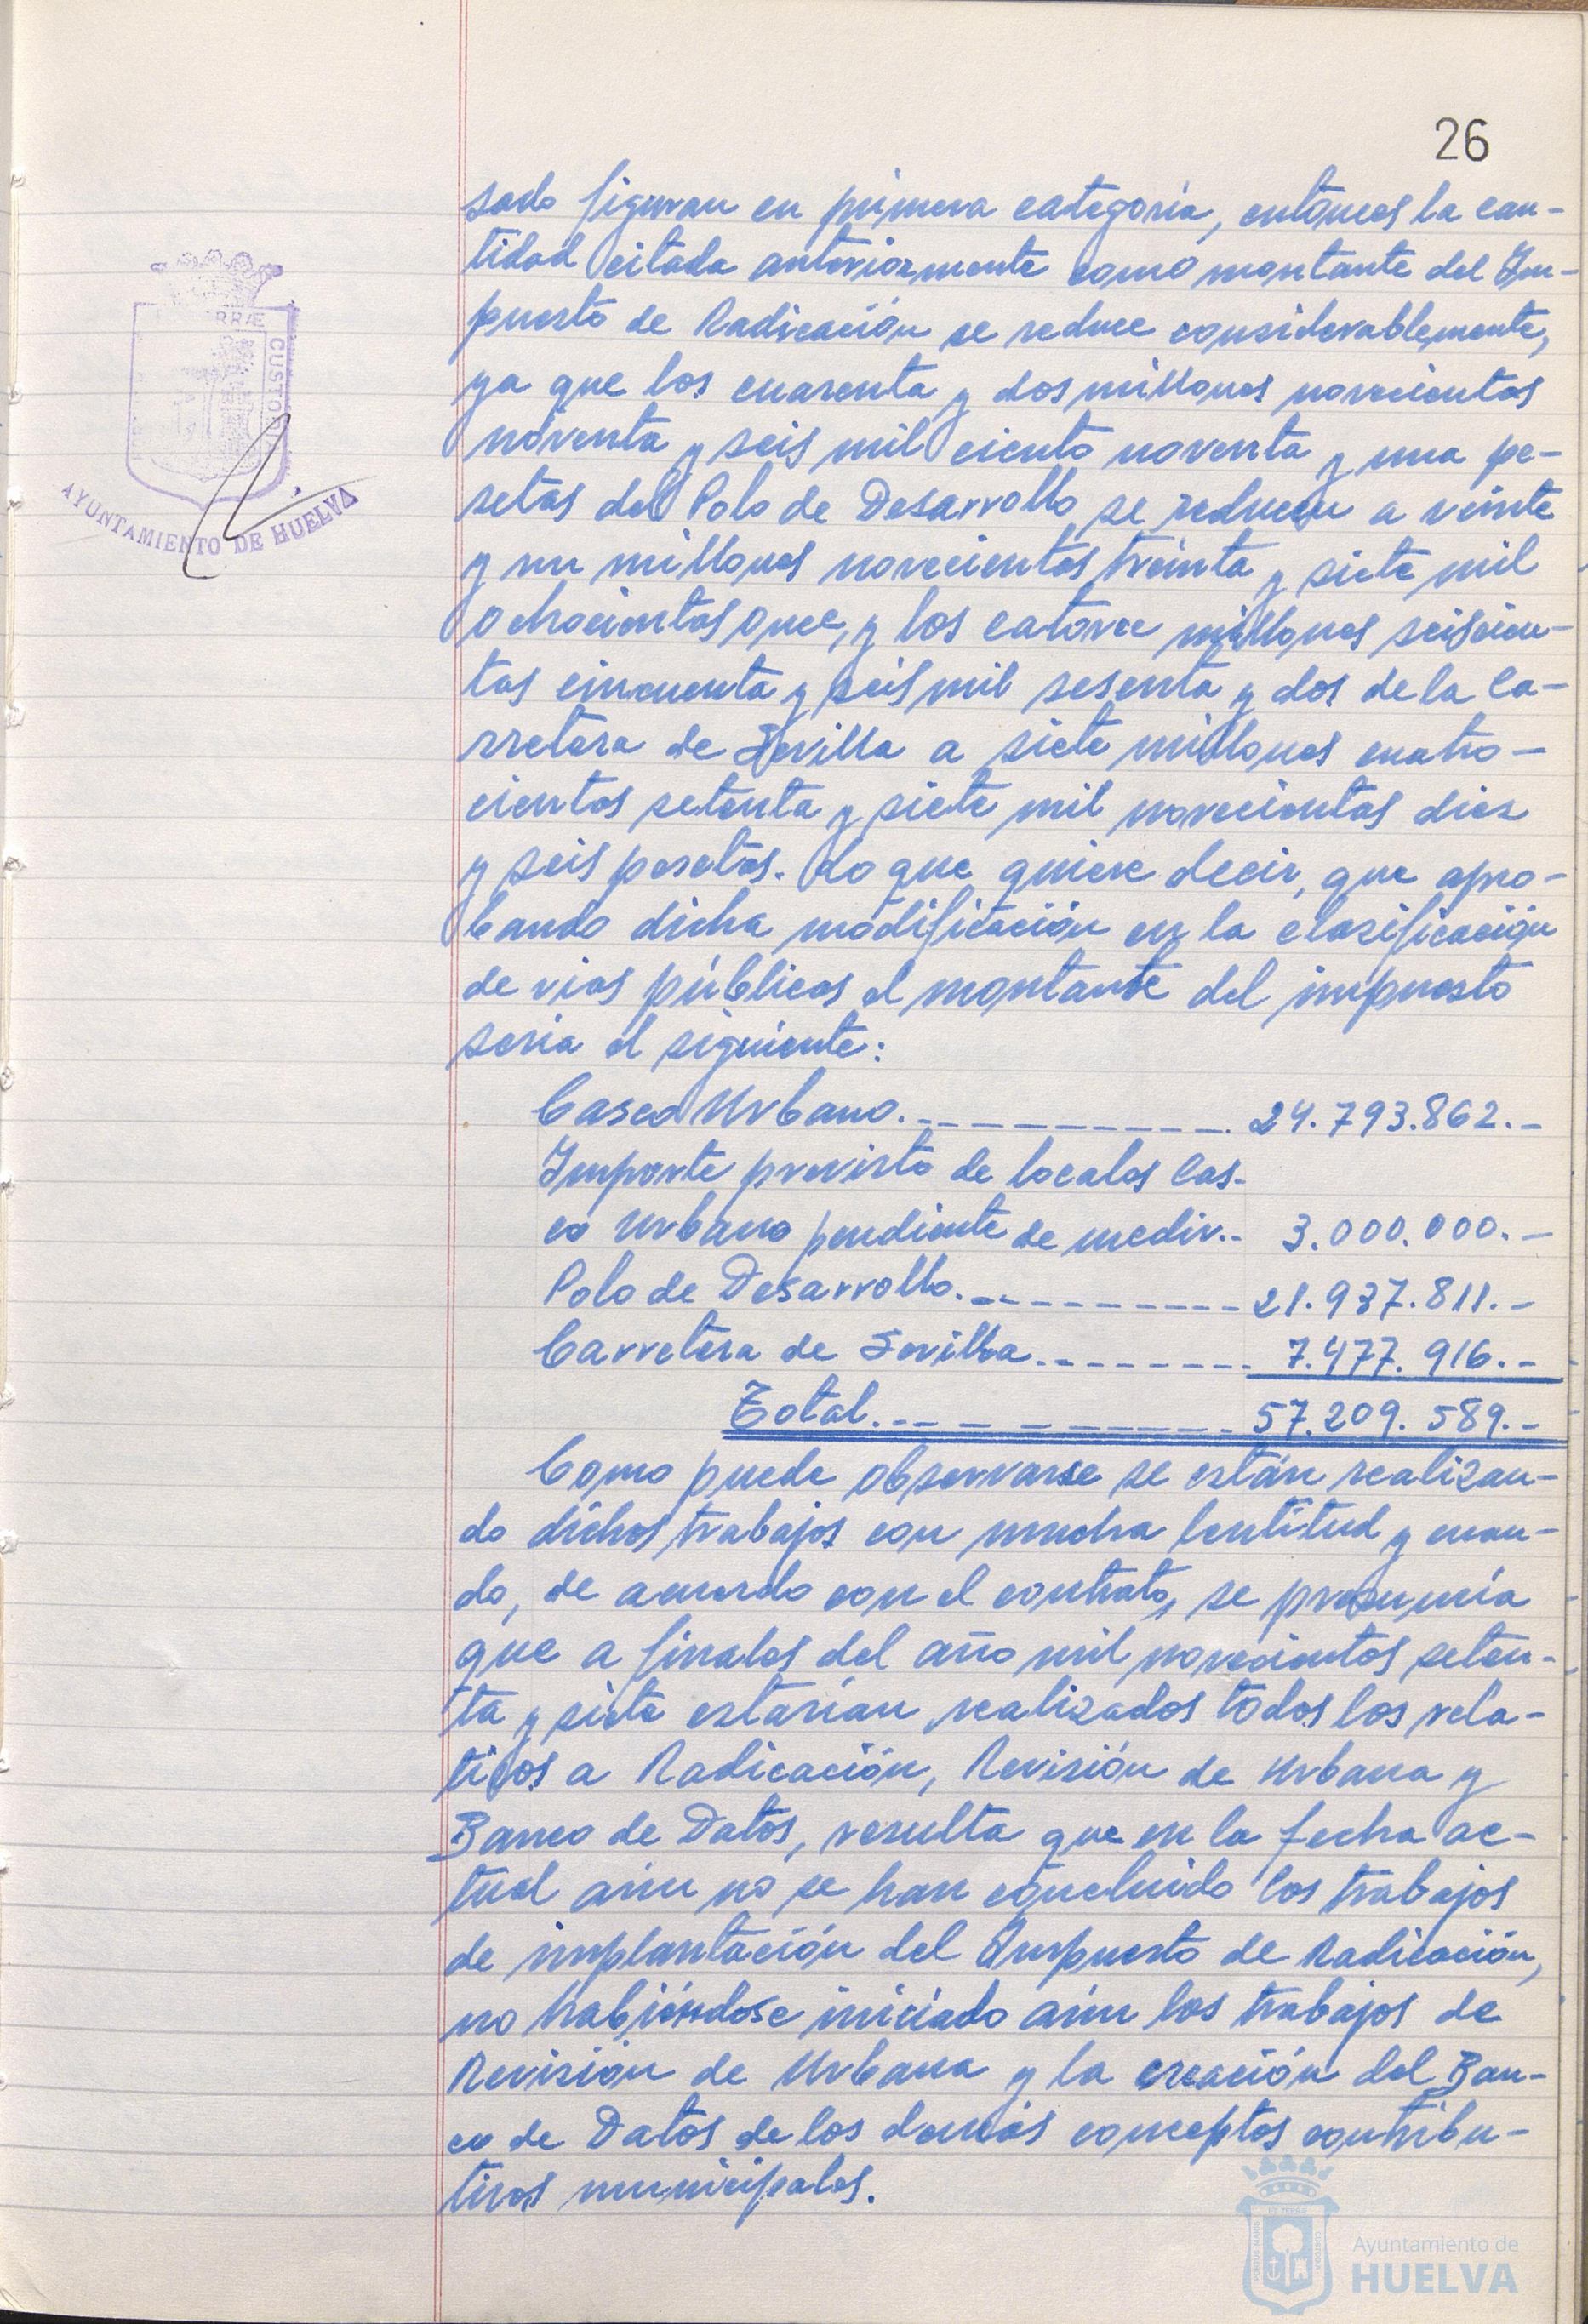 26
sado figuran en primera categoría, entonces la can-
tidad citada anteriormente como montante del Im-
puesto de Radicación se reduce considerablemente,
ya que los cuarenta y dos millones novecientas
noventa y seis mil ciento noventa y una pe-
setas del Polo de Desarrollo se reducen a veinte
y un millones novecientas treinta y siete mil
ochocientas once, y los catorce millones seiscien-
tas cincuenta y seis mil sesenta y dos de la Ca-
rretera de Sevilla a siete millones cuatro-
cientas setenta y siete mil novecientas diez
y seis pesetas. Lo que quiere decir, que apro-
bando dicha modificación en la clasificación
de vias públicas el montante del impuesto
seria el siguiente:
Casco Urbano. 24.793.862.-
Importe previsto de locales Cas-
co Urbano pendiente de medir.. 3.000.000.-
Polo de Desarrollo. 21.937.811.-
Carretera de Sevilla. 7.477.916.-
Total. 57.209.589.-
Como puede observarse se están realizan-
do dichos trabajos con mucha lentitud y cuan-
do, de acuerdo con el contrato, se presumía
que a finales del año mil novecientos seten-
ta y siete estarían realizados todos los rela-
tivos a Radicación, Revisión de Urbana y
Banco de Datos, resulta que en la fecha ac-
tual aún no se han concluido los trabajos
de implantación del Impuesto de Radicación,
no habiéndose iniciado aún los trabajos de
Revisión de Urbana y la creación del Ban-
co de Datos de los demás conceptos contribu-
tivos municipales.
RRÆ
CUSTO
AYUNTAMIENTO DE HUELVA
Ayuntamiento de
HUELVA